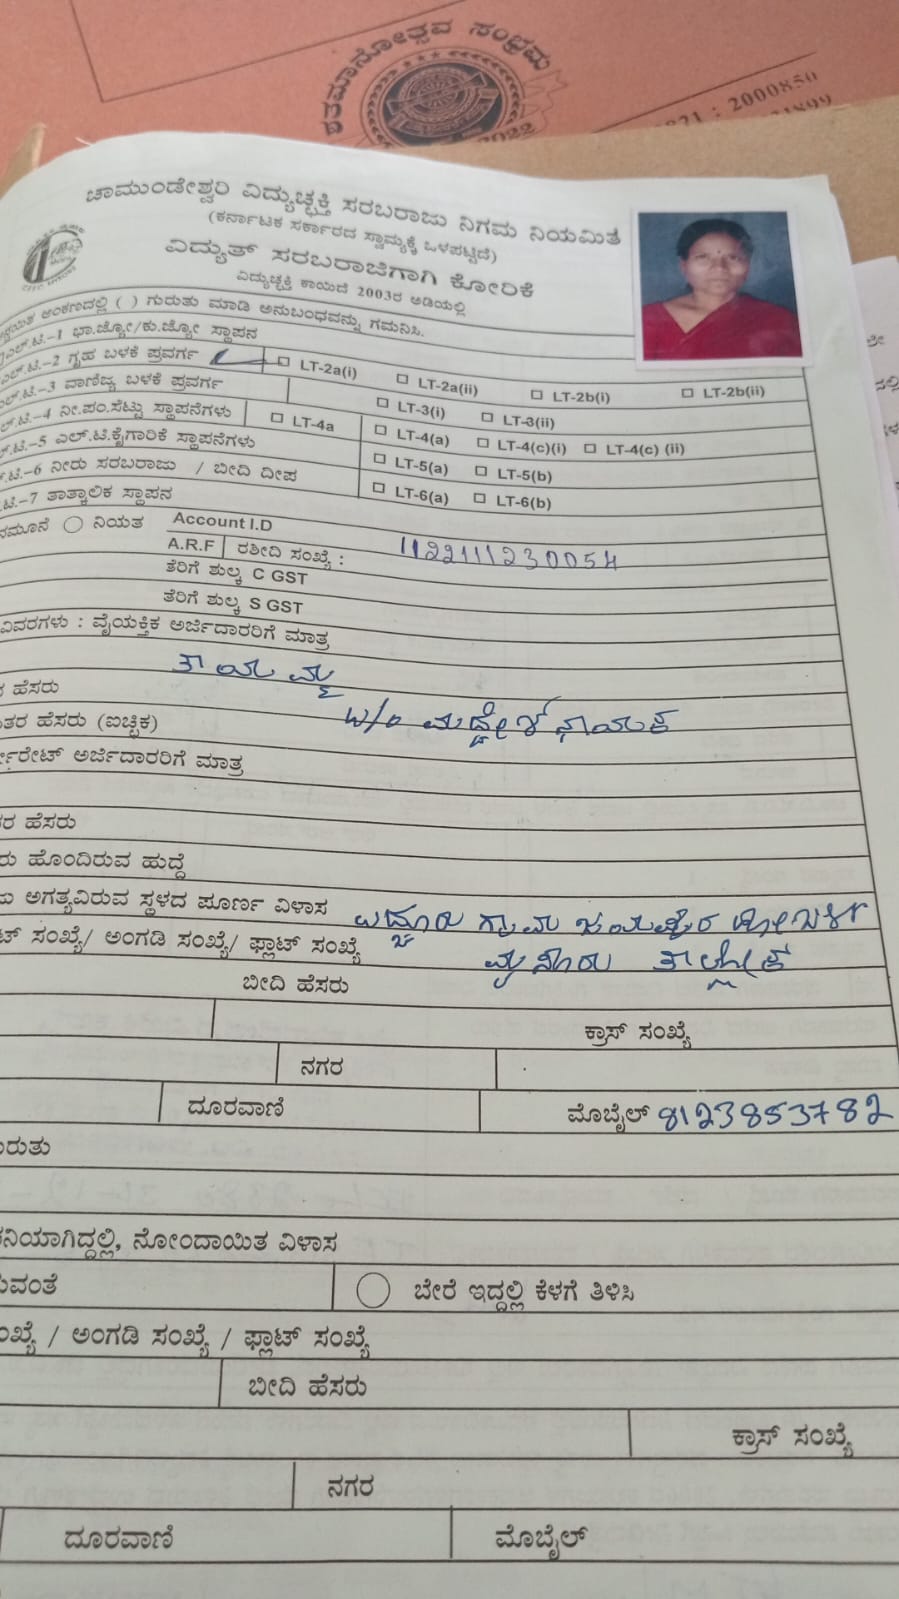 ಶತಮಾನೋತ್ಸವ ಸಂಭ್ರಮ
2022
: 2000850
ಚಾಮುಂಡೇಶ್ವರಿ ವಿದ್ಯುಚ್ಛಕ್ತಿ ಸರಬರಾಜು ನಿಗಮ ನಿಯಮಿತ
(ಕರ್ನಾಟಕ ಸರ್ಕಾರದ ಸ್ವಾಮ್ಯಕ್ಕೆ ಒಳಪಟ್ಟಿದೆ)
ವಿದ್ಯುತ್ ಸರಬರಾಜಿಗಾಗಿ ಕೋರಿಕೆ
ವಿದ್ಯುಚ್ಛಕ್ತಿ ಕಾಯಿದೆ 2003ರ ಅಡಿಯಲ್ಲಿ
ಅಂಕಣದಲ್ಲಿ ( ) ಗುರುತು ಮಾಡಿ ಅನುಬಂಧವನ್ನು ಗಮನಿಸಿ.
ಎಲ್.ಟಿ.–1 ಭಾ.ಜ್ಯೋ/ಕು.ಜ್ಯೋ ಸ್ಥಾಪನ
ಎಲ್.ಟಿ.–2 ಗೃಹ ಬಳಕೆ ಪ್ರವರ್ಗ LT-2a(i) LT-2a(ii) LT-2b(i) LT-2b(ii)
ಎಲ್.ಟಿ.–3 ವಾಣಿಜ್ಯ ಬಳಕೆ ಪ್ರವರ್ಗ LT-3(i) LT-3(ii)
ಲ್.ಟಿ.–4 ನೀ.ಪಂ.ಸೆಟ್ಟು ಸ್ಥಾಪನೆಗಳು LT-4a LT-4(a) LT-4(c)(i) LT-4(c) (ii)
ಲ್.ಟಿ.–5 ಎಲ್.ಟಿ.ಕೈಗಾರಿಕೆ ಸ್ಥಾಪನೆಗಳು LT-5(a) LT-5(b)
.ಟಿ.–6 ನೀರು ಸರಬರಾಜು / ಬೀದಿ ದೀಪ LT-6(a) LT-6(b)
.ಟಿ.–7 ತಾತ್ಕಾಲಿಕ ಸ್ಥಾಪನ
ನಮೂನೆ ನಿಯತ Account I.D
A.R.F ರಶೀದಿ ಸಂಖ್ಯೆ : 1122111230054
ತೆರಿಗೆ ಶುಲ್ಕ C GST
ತೆರಿಗೆ ಶುಲ್ಕ S GST
ವಿವರಗಳು : ವೈಯಕ್ತಿಕ ಅರ್ಜಿದಾರರಿಗೆ ಮಾತ್ರ
ತಾಯಮ್ಮ
ಹೆಸರು
w/o ಮದ್ದೇಶ್ ನಾಯಕ
ತರ ಹೆಸರು (ಐಚ್ಛಿಕ)
ರ್ಪೊರೇಟ್ ಅರ್ಜಿದಾರರಿಗೆ ಮಾತ್ರ
ರ ಹೆಸರು
ರು ಹೊಂದಿರುವ ಹುದ್ದೆ
ಅಗತ್ಯವಿರುವ ಸ್ಥಳದ ಪೂರ್ಣ ವಿಳಾಸ ಗ್ರಾಮ ಜಯಪುರ ಹೋಬಳಿ
ಟ್ ಸಂಖ್ಯೆ/ ಅಂಗಡಿ ಸಂಖ್ಯೆ/ ಫ್ಲಾಟ್ ಸಂಖ್ಯೆ ಮೈಸೂರು ತಾಲ್ಲೋಕ
ಬೀದಿ ಹೆಸರು
ಕ್ರಾಸ್ ಸಂಖ್ಯೆ
ನಗರ
ದೂರವಾಣಿ ಮೊಬೈಲ್ 8123853782
ುರುತು
ನಿಯಾಗಿದ್ದಲ್ಲಿ, ನೋಂದಾಯಿತ ವಿಳಾಸ
ುವಂತೆ ಬೇರೆ ಇದ್ದಲ್ಲಿ ಕೆಳಗೆ ತಿಳಿಸಿ
ಂಖ್ಯೆ / ಅಂಗಡಿ ಸಂಖ್ಯೆ / ಫ್ಲಾಟ್ ಸಂಖ್ಯೆ
ಬೀದಿ ಹೆಸರು
ಕ್ರಾಸ್ ಸಂಖ್ಯೆ
ನಗರ
ದೂರವಾಣಿ ಮೊಬೈಲ್